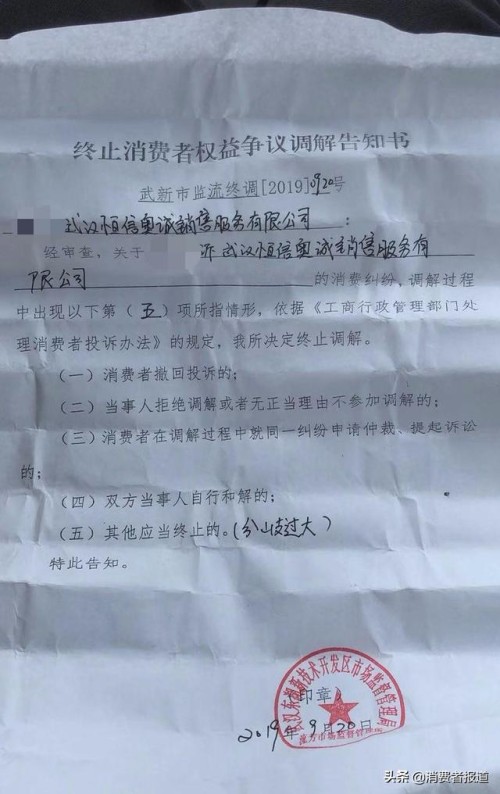 终止消费者权益争议调解告知书
武新市监流终调[2019]0920号
武汉恒信奥诚销售服务有限公司：
经审查，关于 诉武汉恒信奥诚销售服务有
限公司 的消费纠纷，调解过程
中出现以下第（五）项所指情形，依据《工商行政管理部门处
理消费者投诉办法》的规定，我所决定终止调解。
（一）消费者撤回投诉的；
（二）当事人拒绝调解或者无正当理由不参加调解的；
（三）消费者在调解过程中就同一纠纷申请仲裁、提起诉讼
的；
（四）双方当事人自行和解的；
（五）其他应当终止的。（分歧过大）
特此告知。
武汉东湖新技术开发区市场监督管理局
（印章）
2019年9月20日
头条@消费者报道